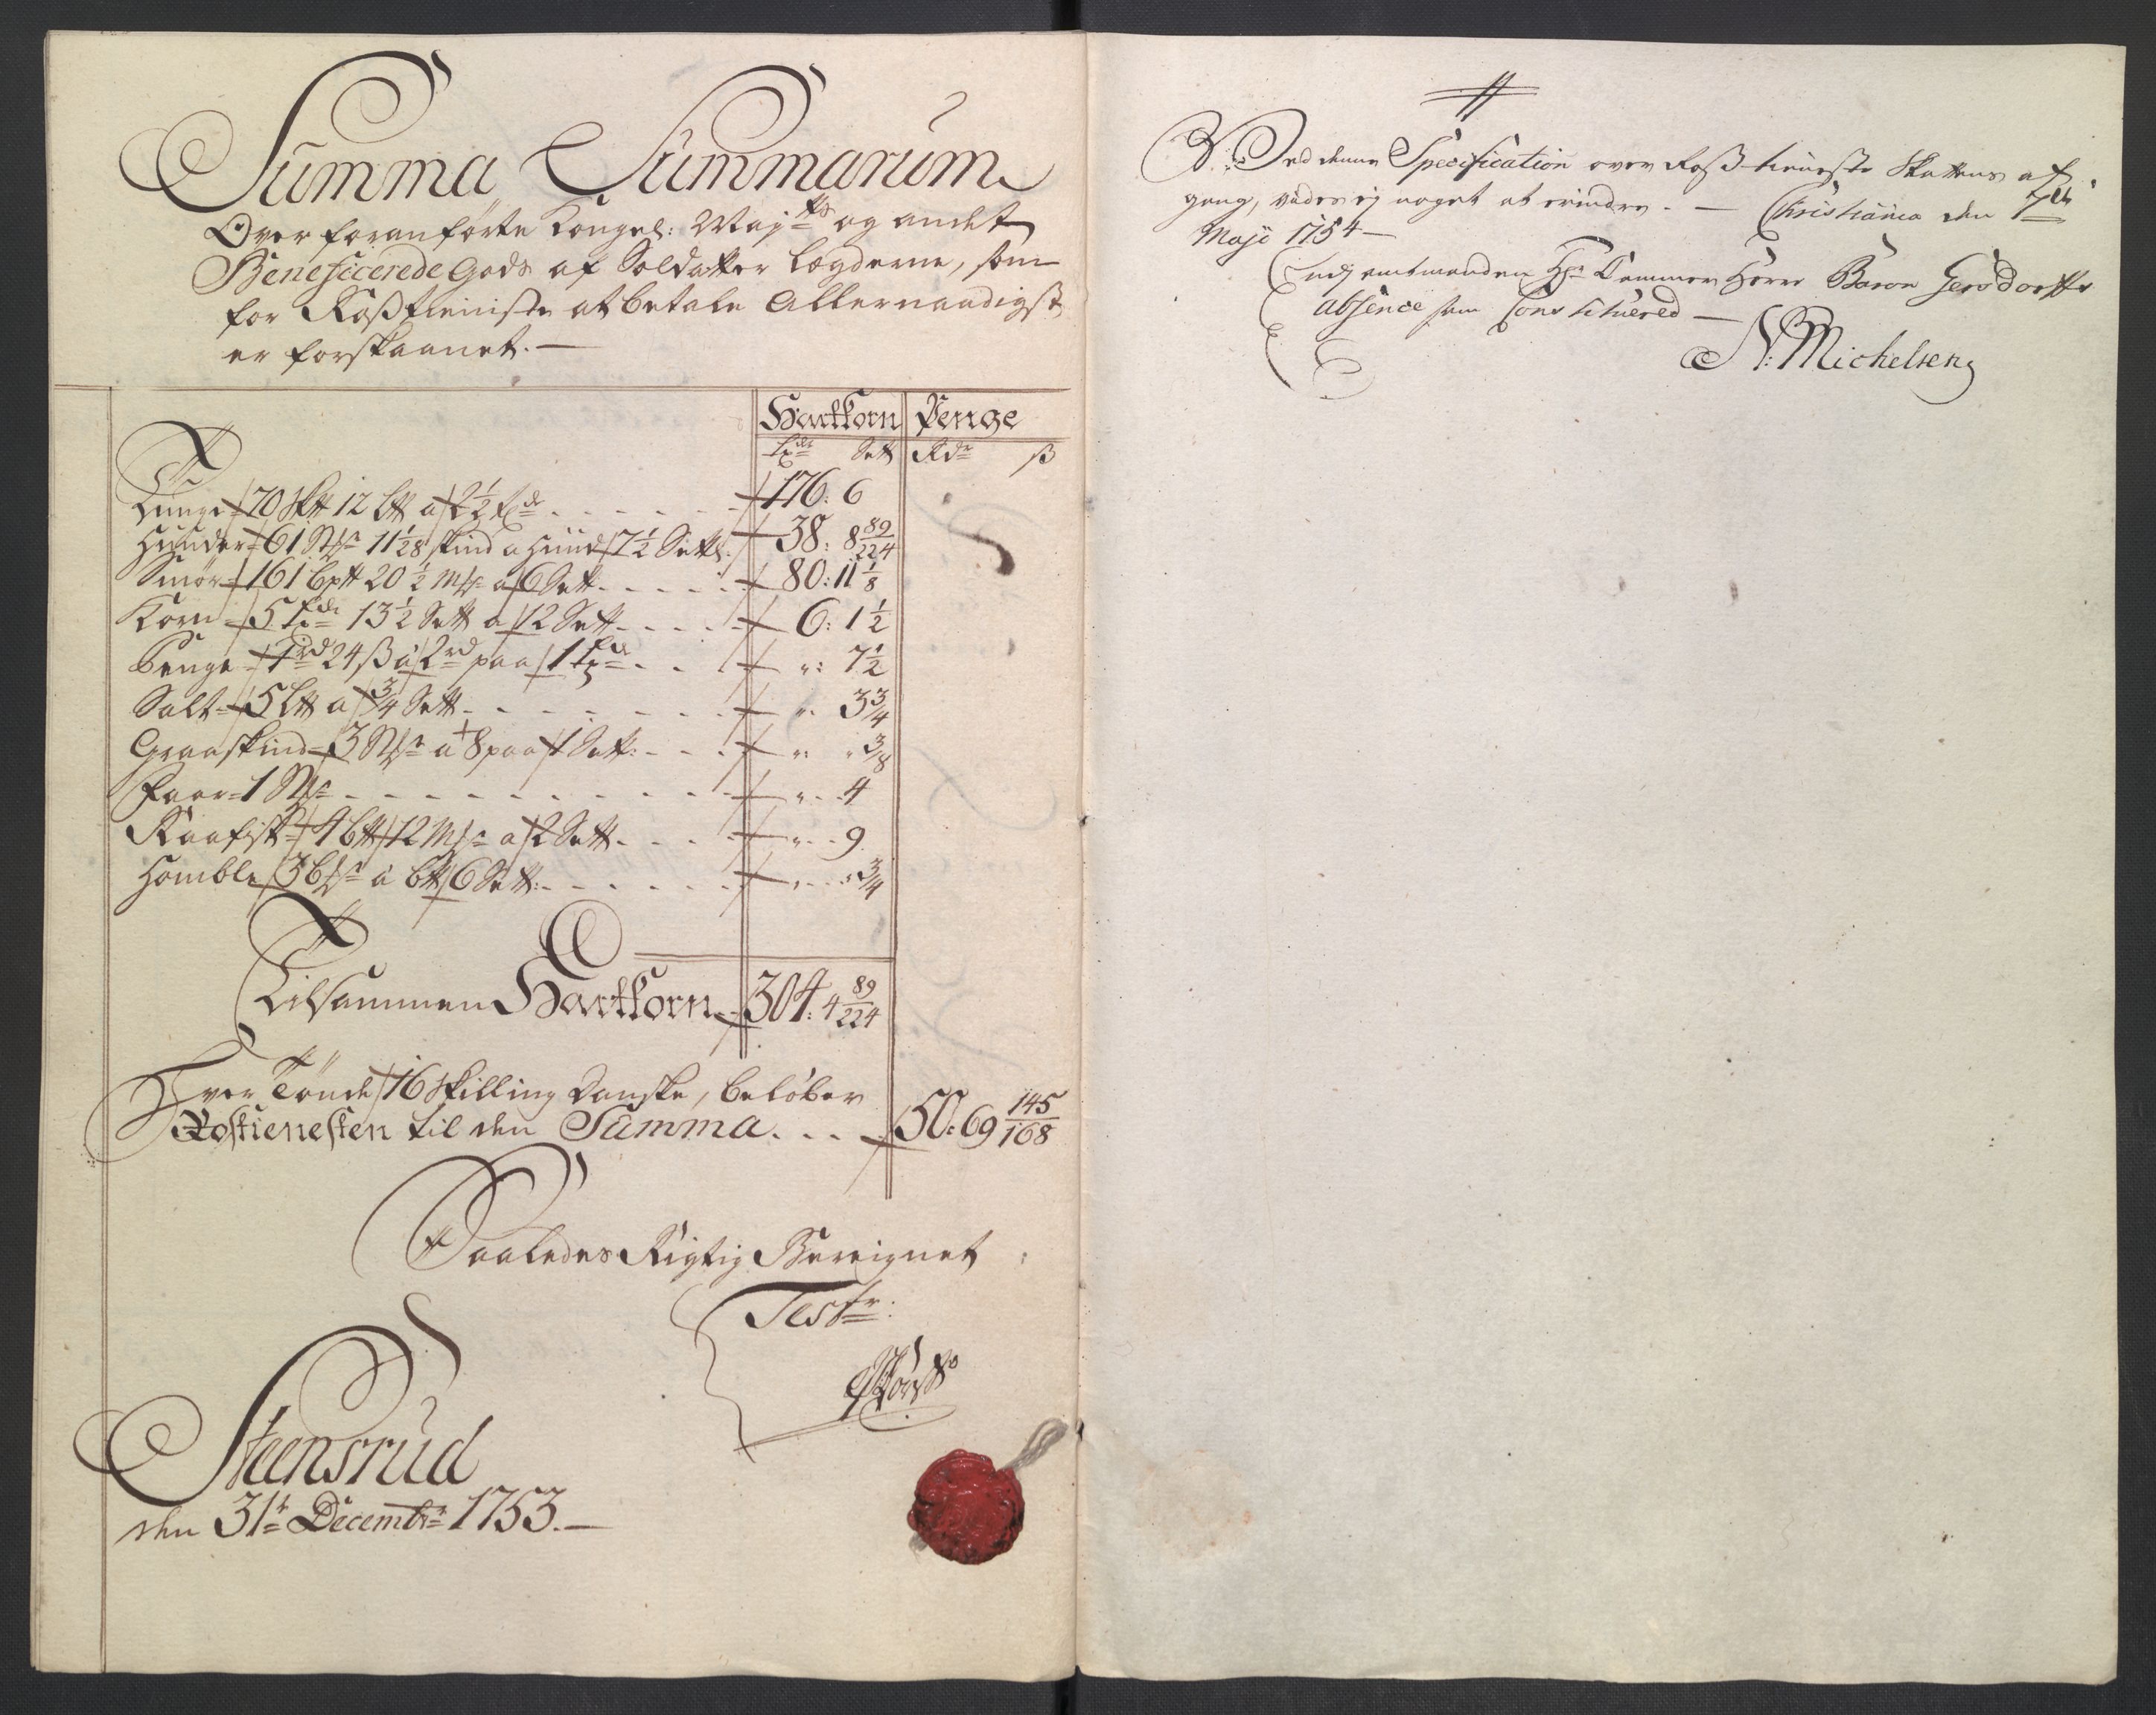 Summa Summarum
Over foranførte Kongel: Maj:ts og andet
Beneficerede Gods af Soldatter Lægderne, som
for Rostieniste at betale Allernaadigst
er forskaanet.
Hartkorn Penge
Tdr Sett Rdr ß
Tunge 70 Sktt 12 Ltt a 2½ Tdr 176: 6
Huuder 61 Stkr 11 1/28 skind a Huud 7½ Sett 38: 8 89/224
Smør 161 Bptt 20½ Mkr a 6 Sett 80: 11 1/8
Korn 5 Tdr 13½ Sett a 12 Sett 6: 1½
Penge 1 rd 24 ß a 2 rd paa 1 Td ": 7½
Salt 5 Ltt a ¾ Sett " 3¾
Graaskind 3 Stkr a 8 paa 1 Sett ": " 3/8
Faar 1 Stk " 4
Raafisk 4 btt 12 Mkr a 2 Sett " 9
Homble 3 b a btt 6 Sett " ¾
Tilsammen Hartkorn 304: 4 89/224
Hver Tønde 16 Skilling Danske, beløber
Rostienesten til den Summa 50: 69 145/168
Saaledes Rigtig Bereignet
Testr:
Steensrud
den 31te Decembr 1753.
Ved denne Specification over Ross-tieneste Skattens af-
gang, vides ej noget at erindre. — Christiania den 7de
Maji 1754
udj amtmanden Hr Cammer Herre Baron Gersdorffs
absence som Constituered
N: Michelsen